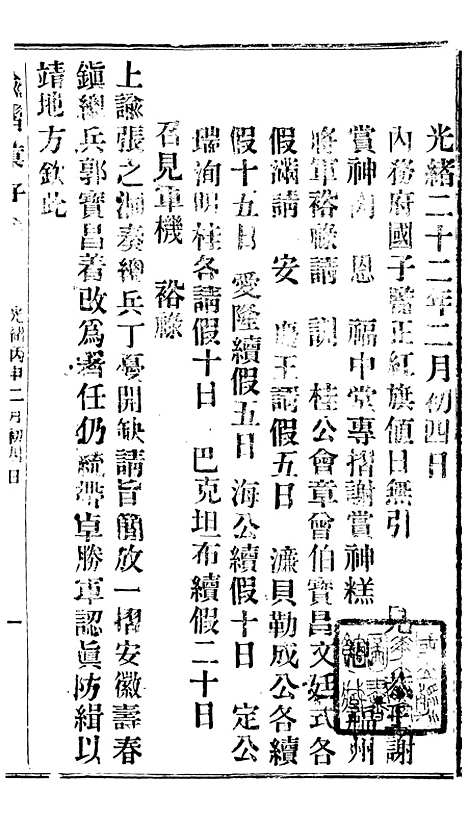 光緒二十二年二月初四日
內務府國子監正紅旗値日無引見 公 謝
賞神肉 恩 福中堂專摺謝賞神糕 州
將軍裕祿請 訓 桂公會章曾伯寶昌文廷式各
假滿請 安 慶王請假五日 濂貝勒成公各續
假十五日 愛隆續假五日 海公續假十日 定公
瑞洵明桂各請假十日 巴克坦布續假二十日
召見軍機 裕祿
上諭張之洞奏總兵丁憂開缺請旨簡放一摺安徽壽春
鎭總兵郭寶昌着改爲署任仍統帶卓勝軍認眞防緝以
靖地方欽此
諭摺彙存
光緒丙申二月初四日
一